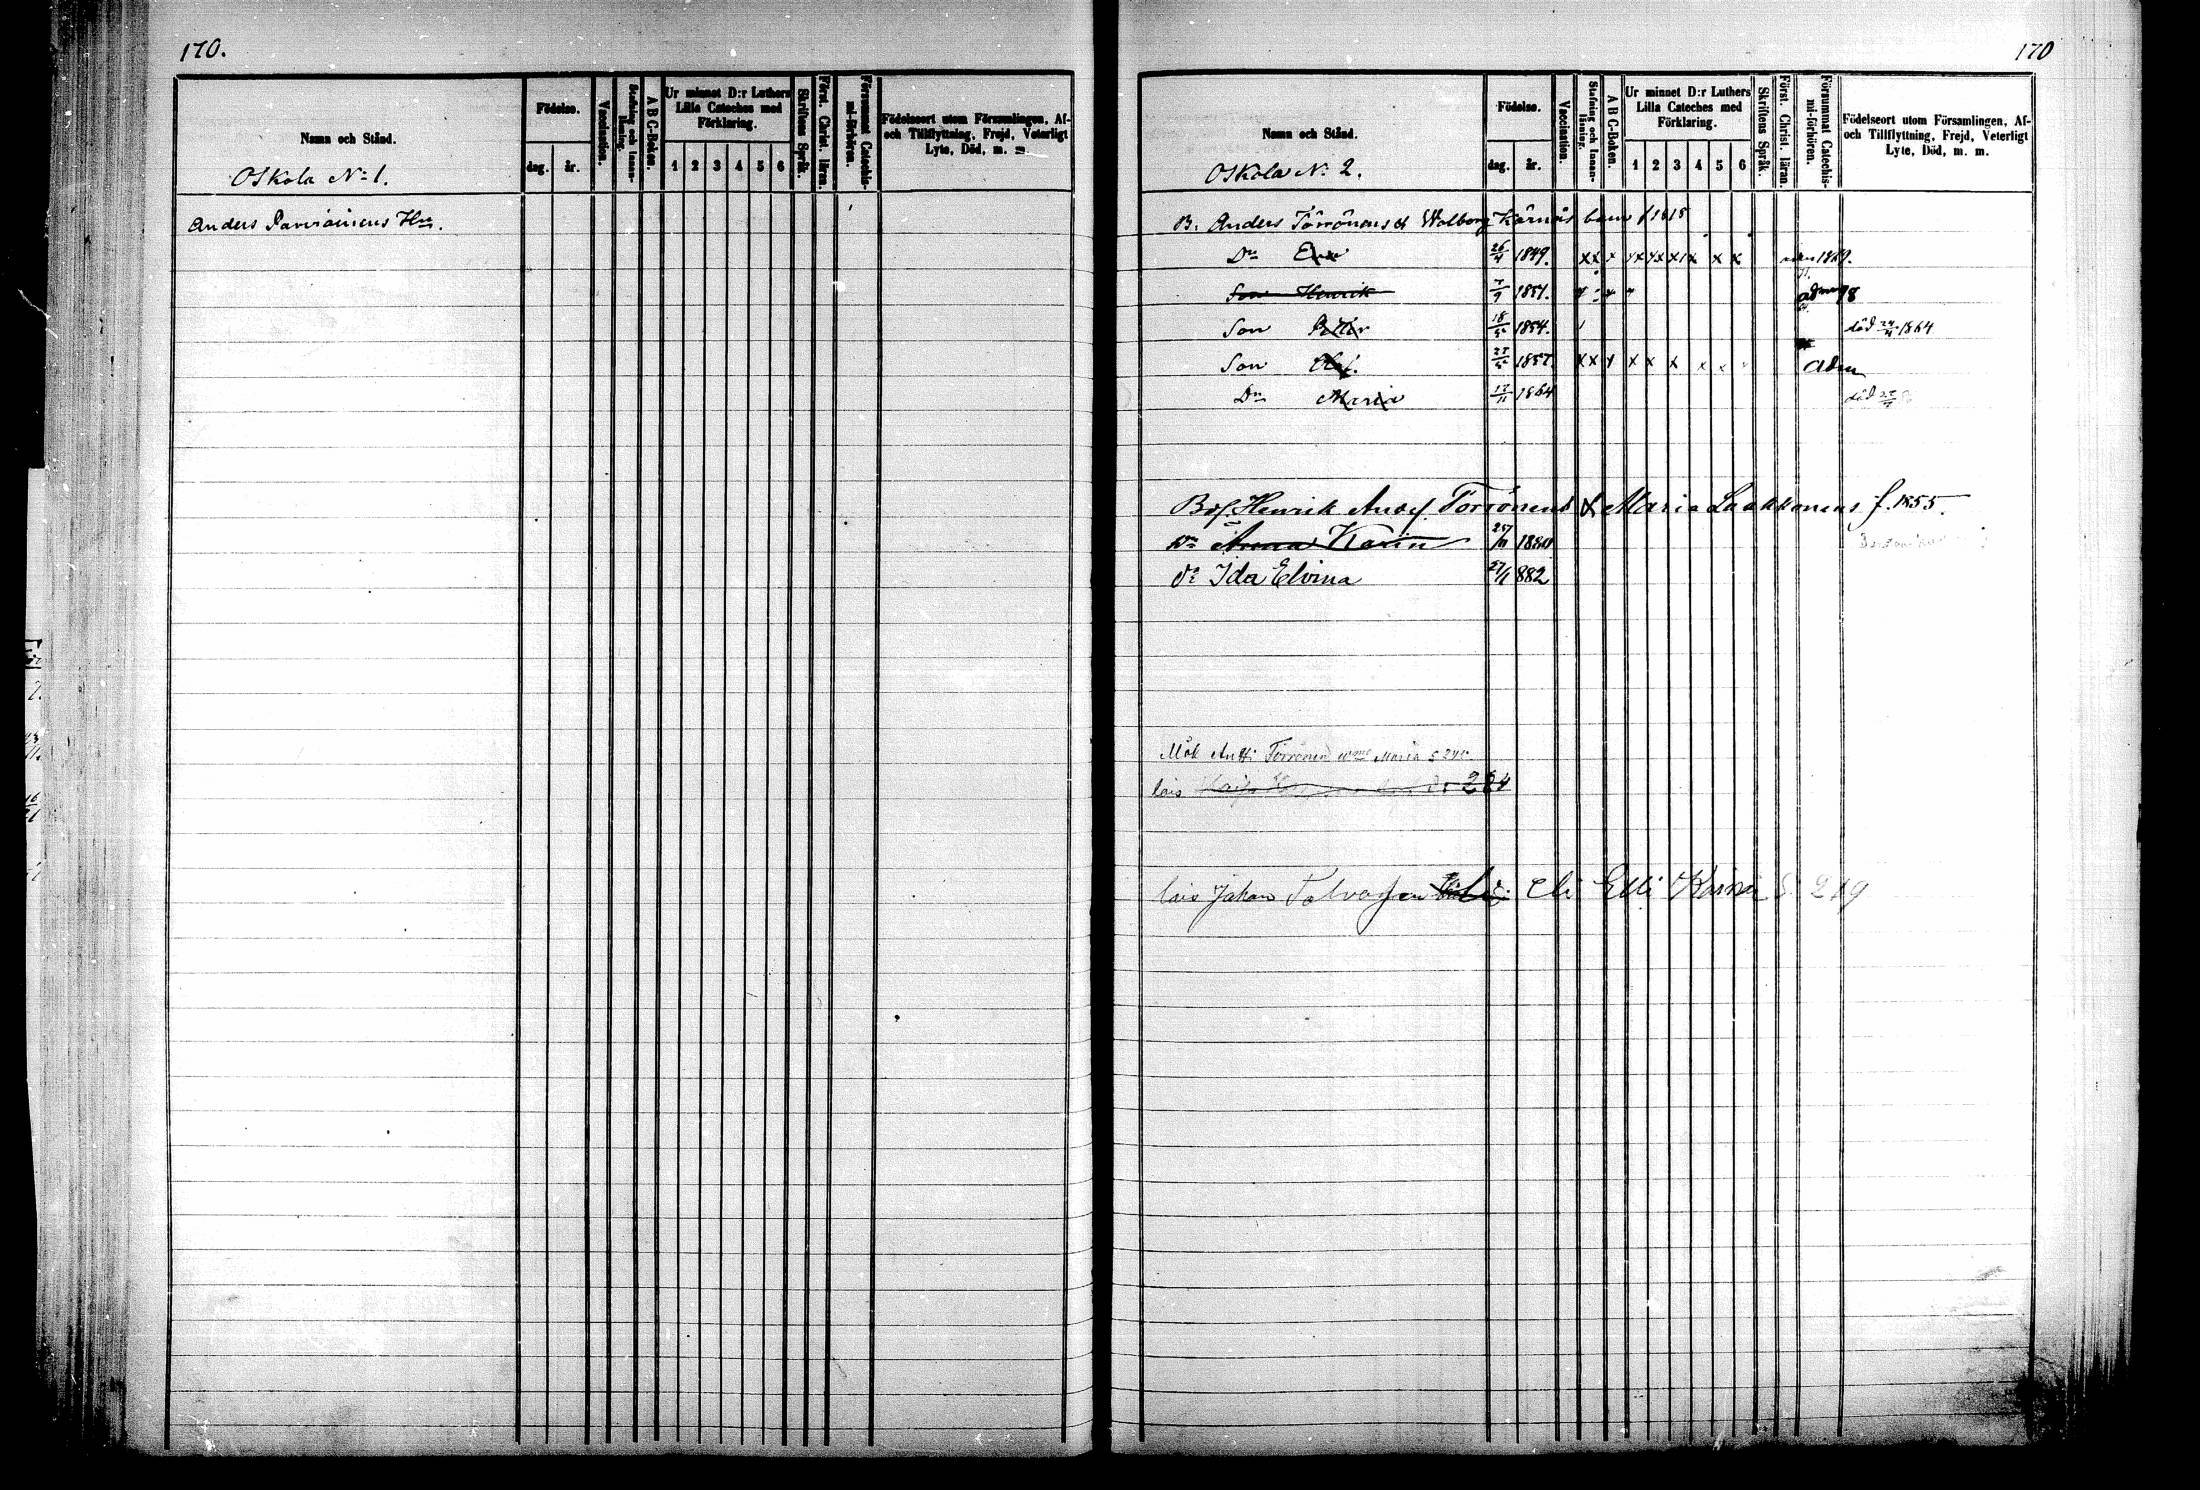 170.
Namn och Stånd.
Födelse.
dag. år.
Vaccination.
Stafning och Innan-läsning.
A B C-Boken.
Ur minnet D:r Luthers Lilla Cateches med Förklaring.
1 2 3 4 5 6
Skriftens Språk.
Först. Christ. läran.
Försummat Catechis-mi-förhören.
Födelseort utom Församlingen, Af- och Tillflyttning, Frejd, Veterligt Lyte, Död, m. m.
Oskola No 1.
Anders Parviainens Hu.
170
Namn och Stånd.
Födelse.
dag. år.
Vaccination.
Stafning och Innan-läsning.
A B C-Boken.
Ur minnet D:r Luthers Lilla Cateches med Förklaring.
1 2 3 4 5 6
Skriftens Språk.
Först. Christ. läran.
Försummat Catechis-mi-förhören.
Födelseort utom Församlingen, Af- och Tillflyttning, Frejd, Veterligt Lyte, Död, m. m.
Oskola No 2.
B. Anders Törrönens & Walborg barn f 1815
Dr 26/4 1849. x x x x x x x x 1869.
Son Henrik 7/9 1851. adm
Son Petter 18/ 1854. död 24/4 1864
Son Olof. 1857. x x x x x x x x adm
Dr Maria 17/11 1864 död
Henrik Andsf. Törrönens & Maria Laakkonens f. 1855.
Dr Anna Karin 25/11 1880
Dr Ida Elvina 27/1 882
Mök Antti Törrönen Maria S 240
lois 224
lois Johan eli Elli Karina S. 219